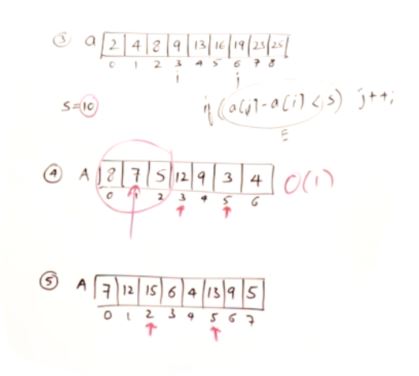 ③ a 2 4 8 9 13 16 19 23 25
0 1 2 3 4 5 6 7 8
i j
S=10 if (a[j]-a[i] < s) j++;
④ A 8 7 5 12 9 3 4 O(1)
0 1 2 3 4 5 6
⑤ A 7 12 15 6 4 13 9 5
0 1 2 3 4 5 6 7